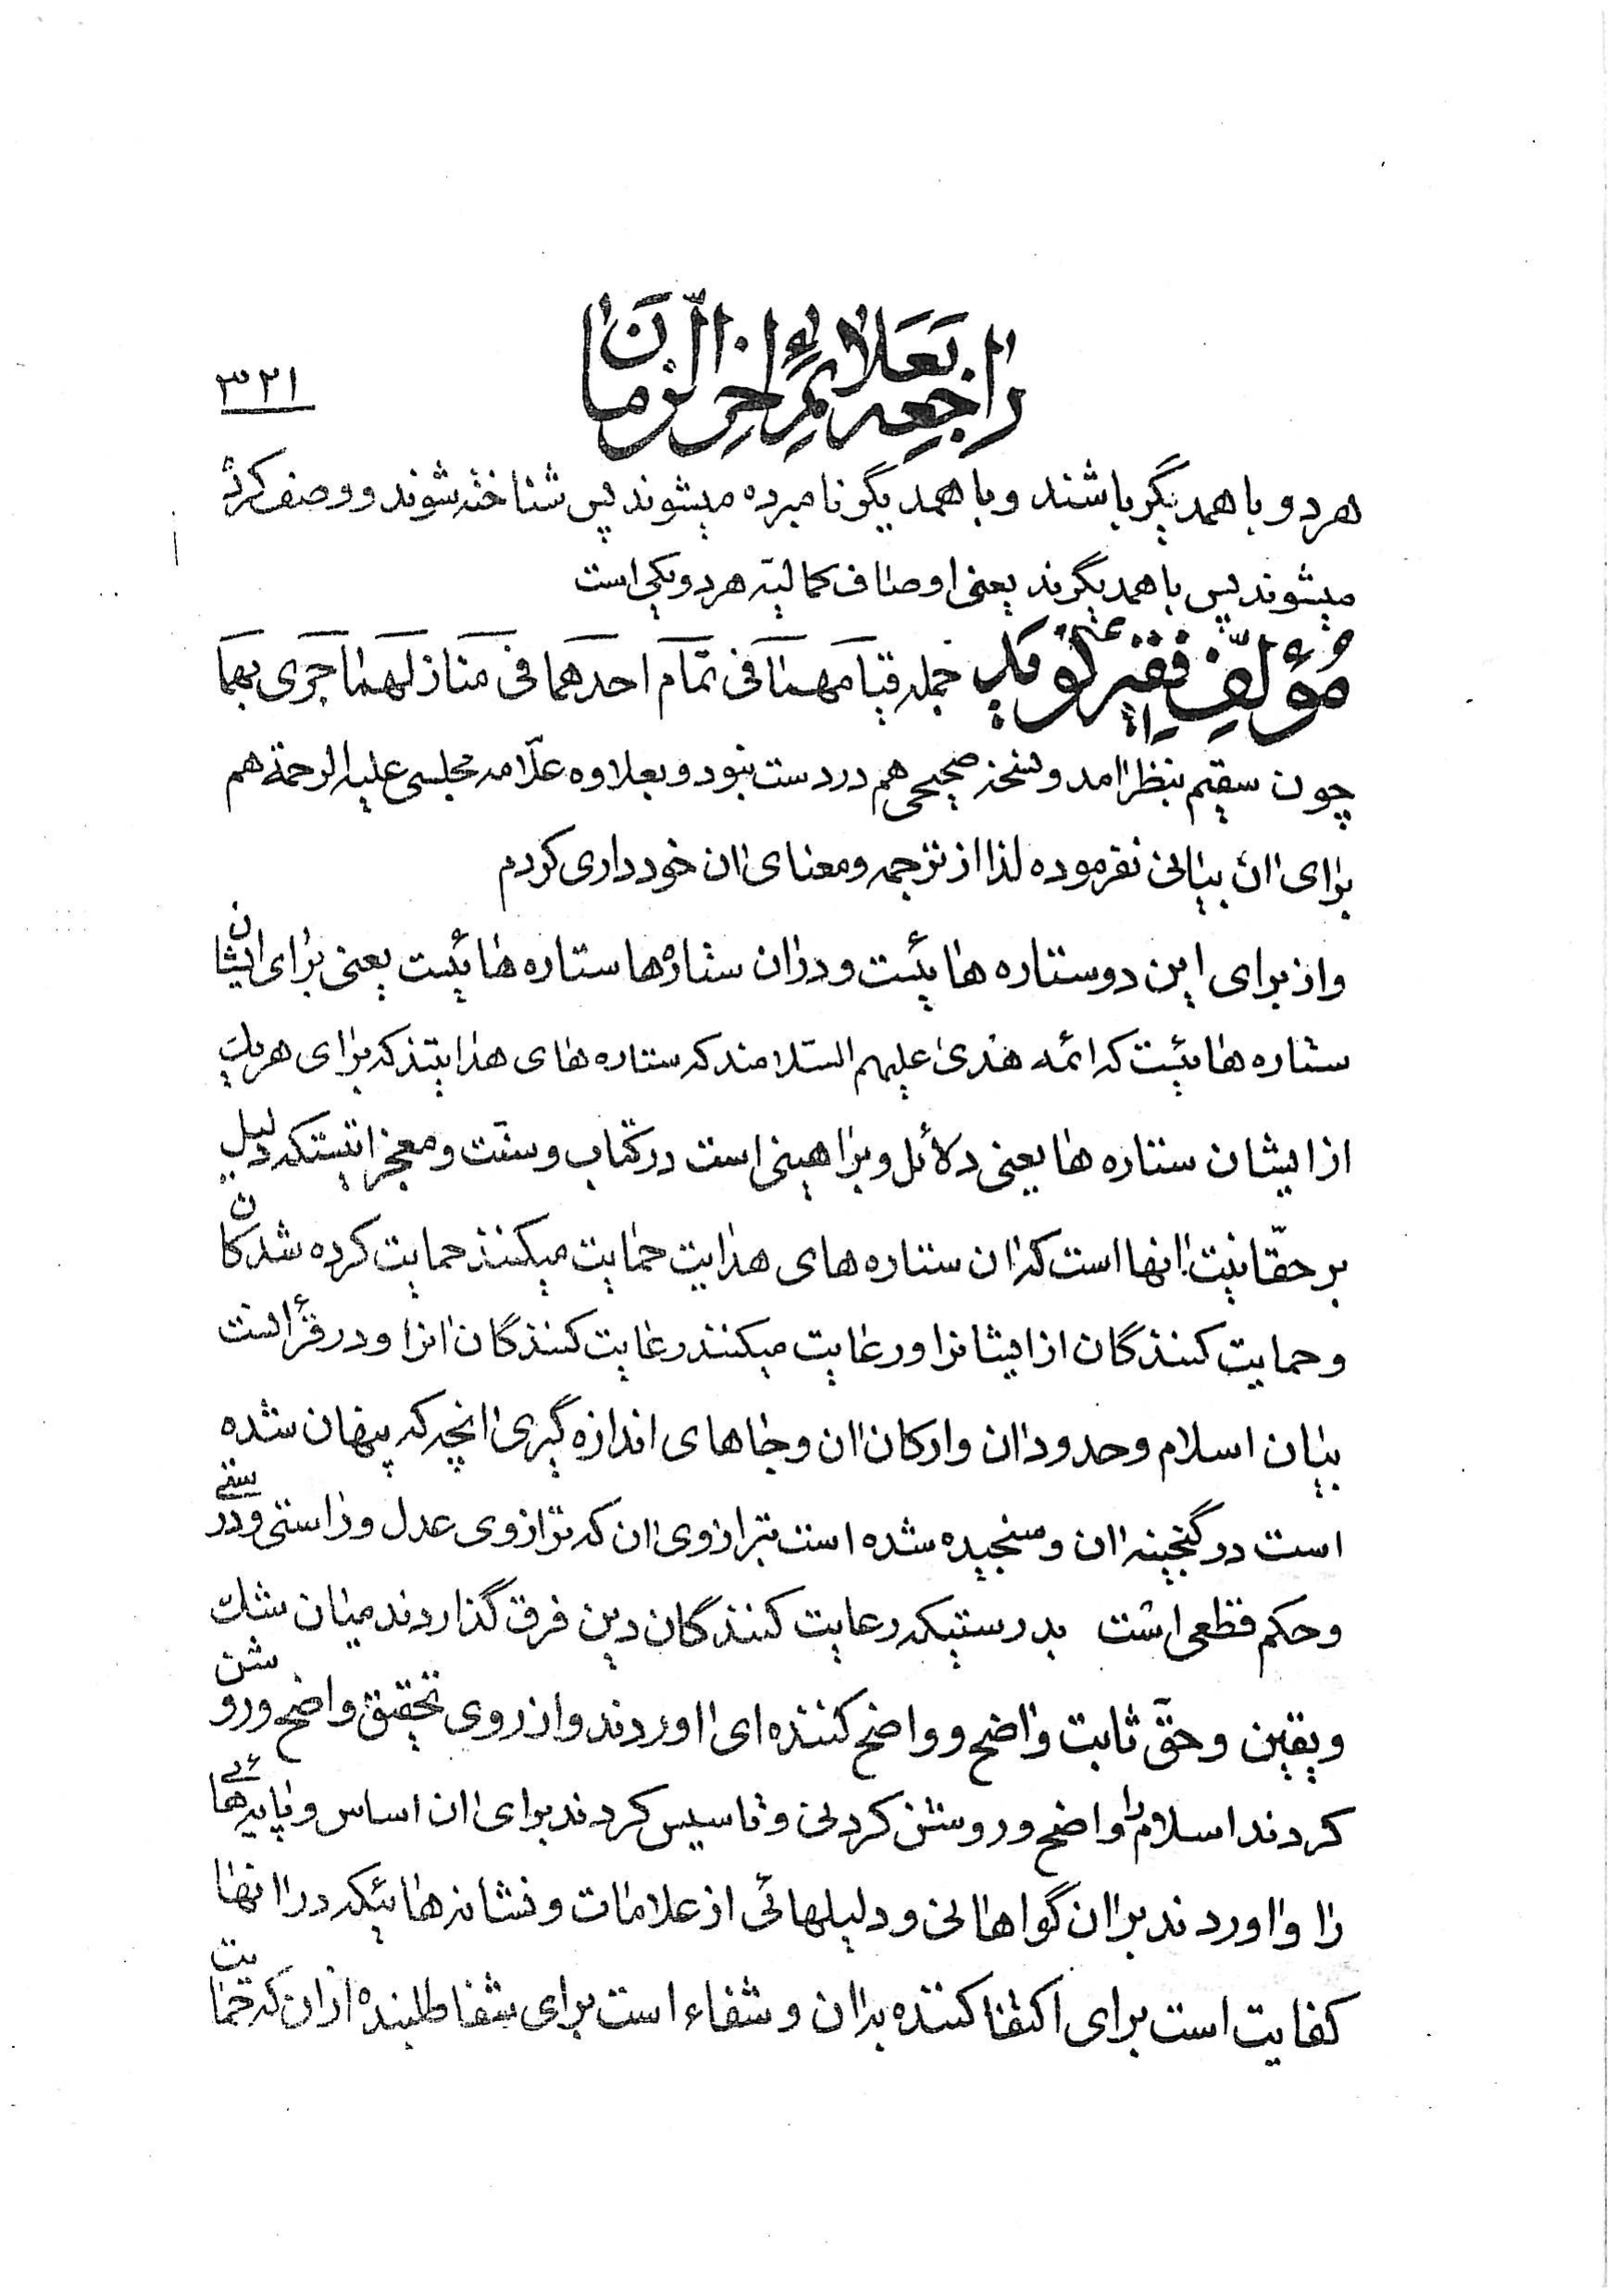 راجعه بعلائم اخر الزمان
۳۲۱
هر دو با همدیگر باشند و با همدیگر نامبرده میشوند پس شناخته شوند و وصف کرده
میشوند پس با همدیگرند یعنی اوصاف کمالیّه هر دو یکی است
مؤلّف فقیر گوید جمله قیامهما فی تمام احدهما فی منازلهما جری بهما
چون سقیم بنظر امد و نسخه صحیحی هم در دست نبود و بعلاوه علّامه مجلسی علیه الرحمة هم
برای ان بیانی نفرموده لذا از ترجمه و معنای ان خودداری کردم
و از برای این دو ستاره هائیست و در ان ستارهها ستاره هائیست یعنی برای ایشان
ستاره هائیست که ائمه هدی علیهم السّلامند که ستاره های هدایتند که برای هر یک
از ایشان ستاره ها یعنی دلائل و براهینی است در کتاب و سنّت و معجزاتیستکه دلیل
بر حقّانیت انها است که ان ستاره های هدایت حمایت میکنند حمایت کرده شدکان
و حمایت کنندگان از ایشانرا و رعایت میکنند رعایت کنندگان انرا و در قرانست
بیان اسلام و حدود ان و ارکان ان و جاهای اندازه گیری انچه که پنهان شده
است در گنجینه ان و سنجیده شده است بترازوی ان که ترازوی عدل و راستی و درستی
و حکم قطعی است بدرستیکه رعایت کنندگان دین فرق گذاردند میان شک
و یقین و حقّ ثابت واضح و واضح کننده ای اوردند و از روی تحقیق واضح و روشن
کردند اسلام را واضح و روشن کردنی و تاسیس کردند برای ان اساس و پایه هائی
را و اوردند بر ان گواهانی و دلیلهائی از علامات و نشانه هائیکه در انها
کفایت است برای اکتفا کننده بدان و شفاء است برای شفا طلبنده از ان که حمایت